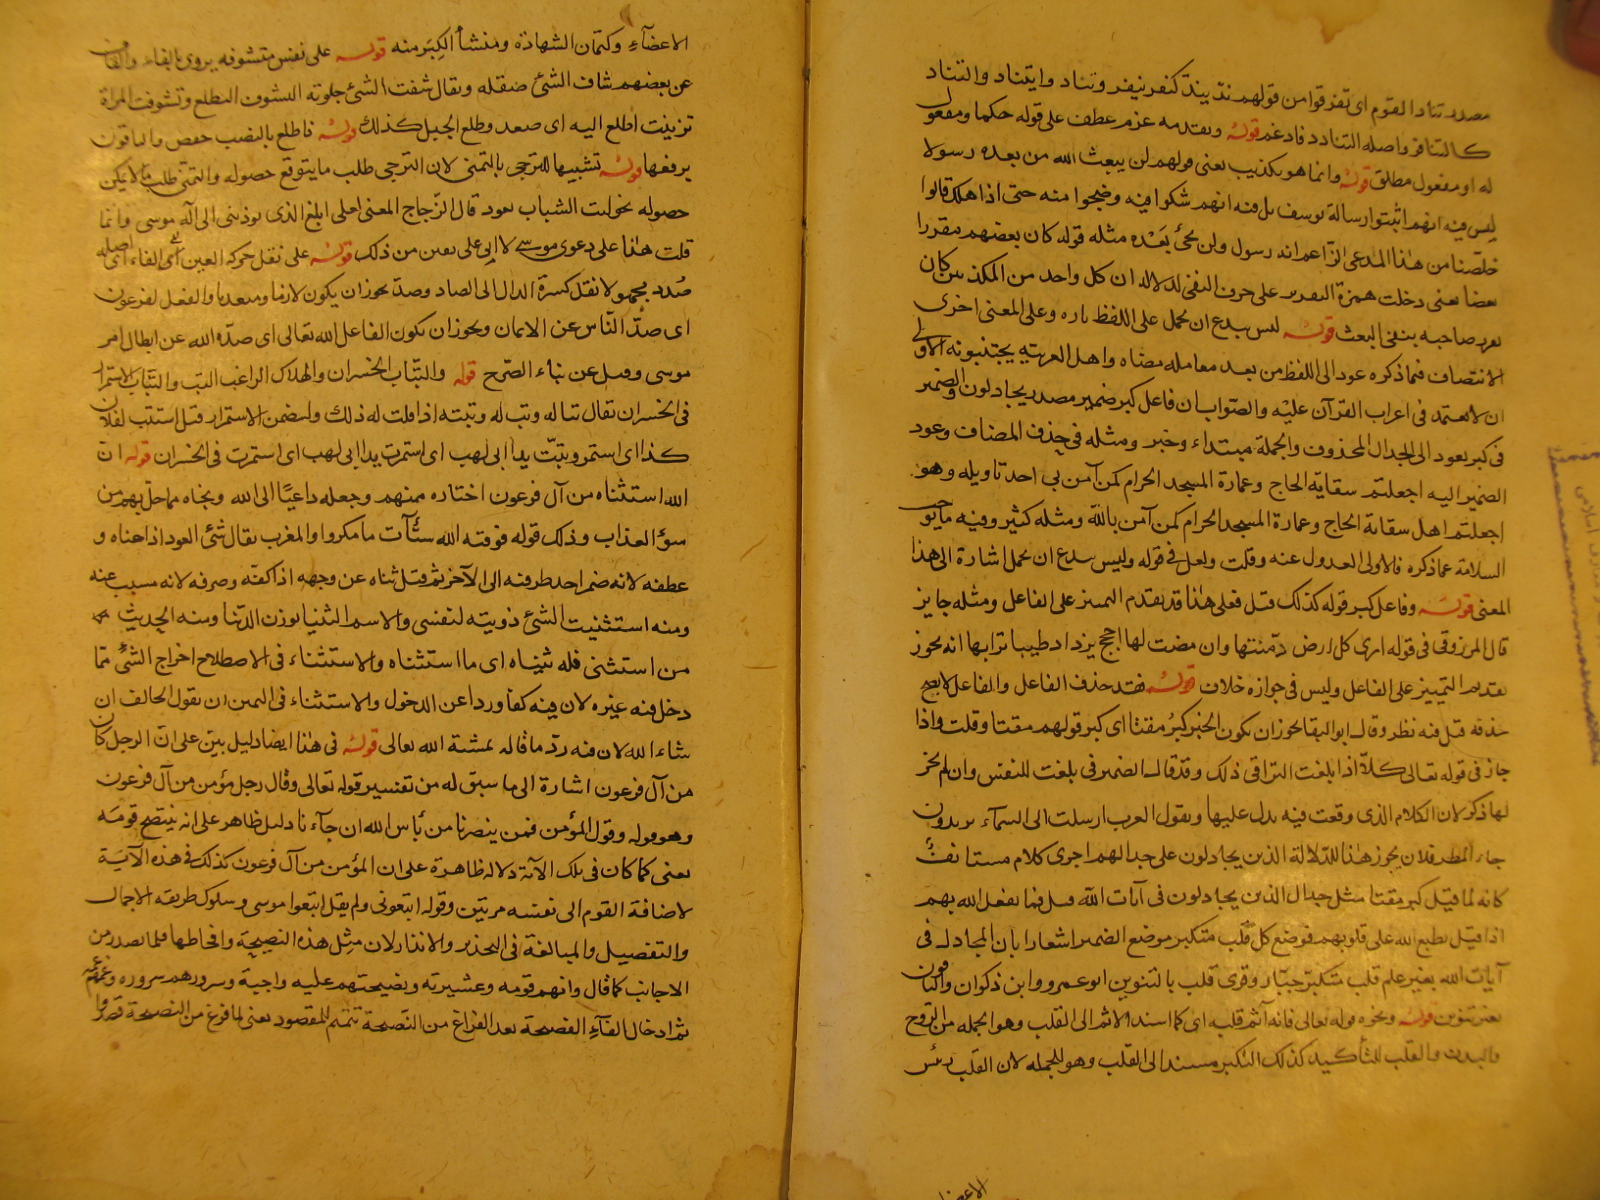 مصدر تناد القوم اى تفرقوا من قولهم ند يند كنفر ينفر وتناد وايتناد والتناد
كالتنافر واصله التنادد فادغم قوله وتقدمه عزم عطف على قوله حكما ومفعول
له او مفعول مطلق قوله وانما هو تكذيب يعنى قولهم لن يبعث الله من بعده رسولا
ليس فيه انهم اثبتوا رسالة يوسف بل فيه انهم شكوا فيه وضجوا منه حتى اذا هلك قالوا
خلصنا من هذا المدعى الزاعم انه رسول ولن يجئ بعده مثله قوله كان بعضهم مقررا
بعضا يعنى دخلت همزة التقرير على حرف النفى لدلالة ان كل واحد من المكذبين كان
يقرر صاحبه بنفى البعث قوله ليس ببدع ان يحمل على اللفظ تارة وعلى المعنى اخرى
الانتصاف فيما ذكره عود الى اللفظ من بعد معاملة معناه واهل العربية يجتنبونه الاولى
ان لا يعتمد فى اعراب القرآن عليه والصواب ان فاعل كبر ضمير مصدر يجادلون والضمير
فى كبر يعود الى الجدال المحذوف والجملة مبتداء وخبر ومثله فى حذف المضاف وعود
الضمير اليه اجعلتم سقاية الحاج وعمارة المسجد الحرام كمن آمن فى احد تاويله وهو
اجعلتم اهل سقاية الحاج وعمارة المسجد الحرام كمن آمن بالله ومثله كثير وفيه ما يوجب
السلامة عما ذكره فالاولى العدول عنه وقلت ولعل فى قوله وليس ببدع ان يحمل اشارة الى هذا
المعنى قوله وفاعل كبر قوله كذلك قيل فعلى هذا قد تقدم التمييز على الفاعل ومثله جايز
قال المرزوقى فى قوله ارى كل ارض دمنتها وان مضت لها حجج يزداد طيبا ترابها انه يجوز
تقديم التمييز على الفاعل وليس فى جوازه خلاف قوله فقد حذف الفاعل والفاعل لا يصح
حذفه قيل فيه نظر وقال ابو البقا يجوز ان يكون الخبر كبر مقتا اى كبر قولهم مقتا وقلت واذا
جاز فى قوله تعالى كلا اذا بلغت التراقى ذلك وقد قال الضمير فى بلغت للنفس وان لم يجر
لها ذكر لان الكلام الذى وقعت فيه يدل عليها وتقول العرب ارسلت الى السماء يريدون
جاء المطر فلان يجوز هذا لدلالة الذين يجادلون على جدالهم اجرى كلام مستانف
كانه لما قيل كبر مقتا مثل جدال الذين يجادلون فى آيات الله قيل فما يفعل الله بهم
اذا قيل يطبع الله على قلوبهم فوضع كل قلب متكبر موضع الضمير اشعارا بان المجادل فى
آيات الله بغير علم قلب متكبر جبار وقرى قلب بالتنوين ابو عمرو وابن ذكوان والباقون
بغير تنوين قوله ونحوه قوله تعالى فانه آثم قلبه اى كما اسند الاثم الى القلب وهو الجملة من الروح
والبدن والقلب للتأكيد كذلك التكبر مسند الى القلب وهو للجملة لان القلب رئيس
الاعضا
الاعضآء وكتمان الشهادة ومنشأ الكبر منه قوله على نفس متشوفة يروى بالفاء والقاف
عن بعضهم شاف الشئ صقله ويقال شفت الشئ جلوته التشوف التطلع وتشوفت المرأة
تزينت اطلع اليه اى صعد وطلع الجبل كذلك قوله فاطلع بالنصب حفص والباقون
برفعها قوله تشبيها للترجى بالتمنى لان الترجى طلب ما يتوقع حصوله والتمنى طلب ما لا يمكن
حصوله نحو ليت الشباب يعود قال الزجاج المعنى لعلى ابلغ الذى يوذينى الى اله موسى وانما
قلت هذا على دعوى موسى لا انى على يقين من ذلك قوله على نقل حركة العين الى الفاء اى اصله
صدد مجهولا نقل كسرة الدال الى الصاد وصد يجوز ان يكون لازما ومتعديا والفعل لفرعون
اى صد الناس عن الايمان ويجوز ان يكون الفاعل الله تعالى اى صده الله عن ابطال امر
موسى وقيل عن بناء الصرح قوله والتباب الخسران والهلاك الراغب التب والتباب الاستمرار
فى الخسران يقال تبا له وتب له وتبته اذا قلت له ذلك ولتضمن الاستمرار قيل استتب لفلان
كذا اى استمر وتبت يدا ابى لهب اى استمرت يدا ابى لهب اى استمرت فى الخسران قوله ان
الله استثناه من آل فرعون اختاره منهم وجعله داعيا الى الله ونجاه مما حل بهم من
سوء العذاب وذلك قوله فوقيه الله سيئات ما مكروا والمغرب يقال ثنى العود اذا حناه و
عطفه لانه ضم احد طرفيه الى الآخر ثم قيل ثناه عن وجهه اذا كفه وصرفه لانه سبب عنه
ومنه استثنيت الشئ زويته لنفسى والاسم الثنيا بوزن الدنيا ومنه الحديث
من استثنى فله ثنياه اى ما استثناه والاستثناء فى الاصطلاح اخراج الشئ مما
دخل فيه غيره لان فيه كفا وردا عن الدخول والاستثناء فى اليمين ان يقول الحالف ان
شاء الله لان فيه رد ما قاله بمشية الله تعالى قوله فى هذا ايضا دليل بين على ان الرجل كان
من آل فرعون اشارة الى ما سبق له من تفسير قوله تعالى وقال رجل مؤمن من آل فرعون
وهو قوله وقول المؤمن فمن ينصرنا من بأس الله ان جآءنا دليل ظاهر على انه ينتصح قومه
يعنى كما كان فى تلك الآية دلالة ظاهرة على ان المؤمن من آل فرعون كذلك فى هذه الآية
لاضافة القوم الى نفسه مرتين وقوله اتبعونى ولم يقل اتبعوا موسى وسلوك طريقة الاجمال
والتفصيل والمبالغة فى التحذير والانذار لان مثل هذه النصيحة وانحاطها قلما تصدر من
الاجانب كما قال وانهم قومه وعشيرته ونصيحتهم عليه واجبة وسرورهم سروره وغمهم غمه
ثم ادخال الفآء الفصيحة بعد الفراغ من النصيحة تتميم للمقصود يعنى لما فرغ من النصيحة قصدوا